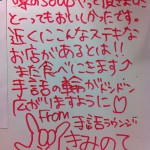 とーってもおいしかったです。
近くにこんなステキな
お店があるとは!!
また食べにきます♪
手話の輪がドンドン
広がりますように
From
手話ラウンジ
きみのて